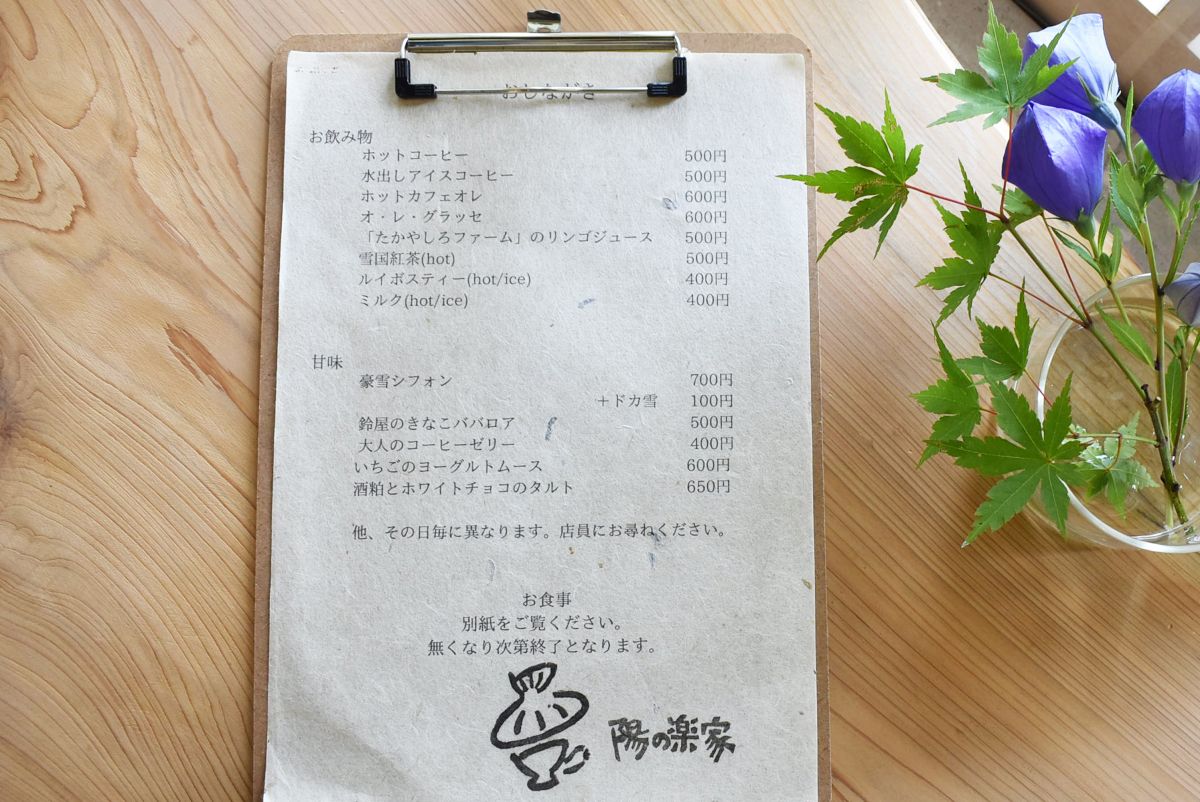 おしながき
お飲み物
ホットコーヒー 500円
水出しアイスコーヒー 500円
ホットカフェオレ 600円
オ・レ・グラッセ 600円
「たかやしろファーム」のリンゴジュース 500円
雪国紅茶(hot) 500円
ルイボスティー(hot/ice) 400円
ミルク(hot/ice) 400円
甘味
豪雪シフォン 700円
＋ドカ雪 100円
鈴屋のきなこババロア 500円
大人のコーヒーゼリー 400円
いちごのヨーグルトムース 600円
酒粕とホワイトチョコのタルト 650円
他、その日毎に異なります。店員にお尋ねください。
お食事
別紙をご覧ください。
無くなり次第終了となります。
陽の楽家